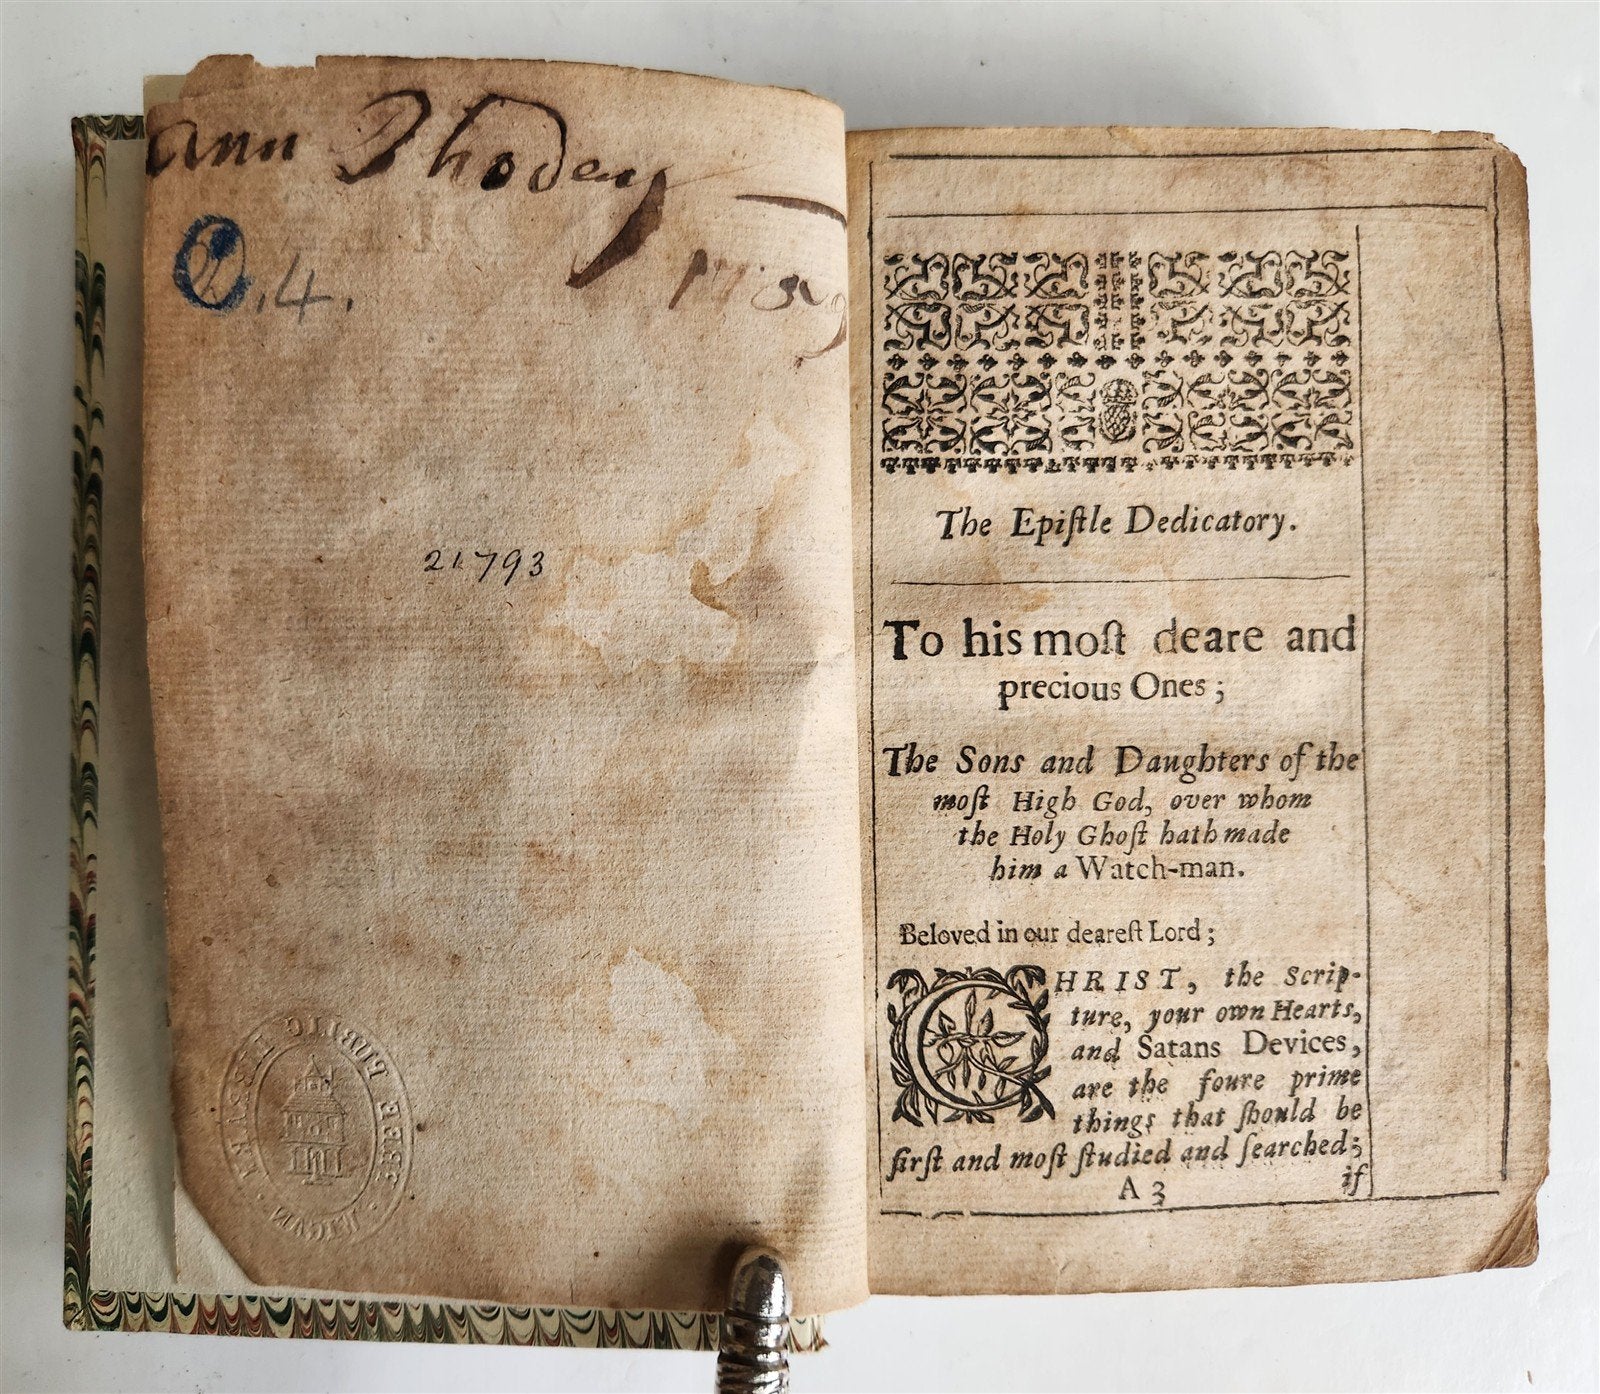 ann Rhodes
C.4.
21793
WIGAN FREE PUBLIC LIBRARY
The Epiſtle Dedicatory.
To his moſt deare and
precious Ones;
The Sons and Daughters of the
moſt High God, over whom
the Holy Ghoſt hath made
him a Watch-man.
Beloved in our deareſt Lord;
CHRIST, the Scrip-
ture, your own Hearts,
and Satans Devices,
are the foure prime
things that ſhould be
firſt and moſt ſtudied and ſearched;
A 3
if